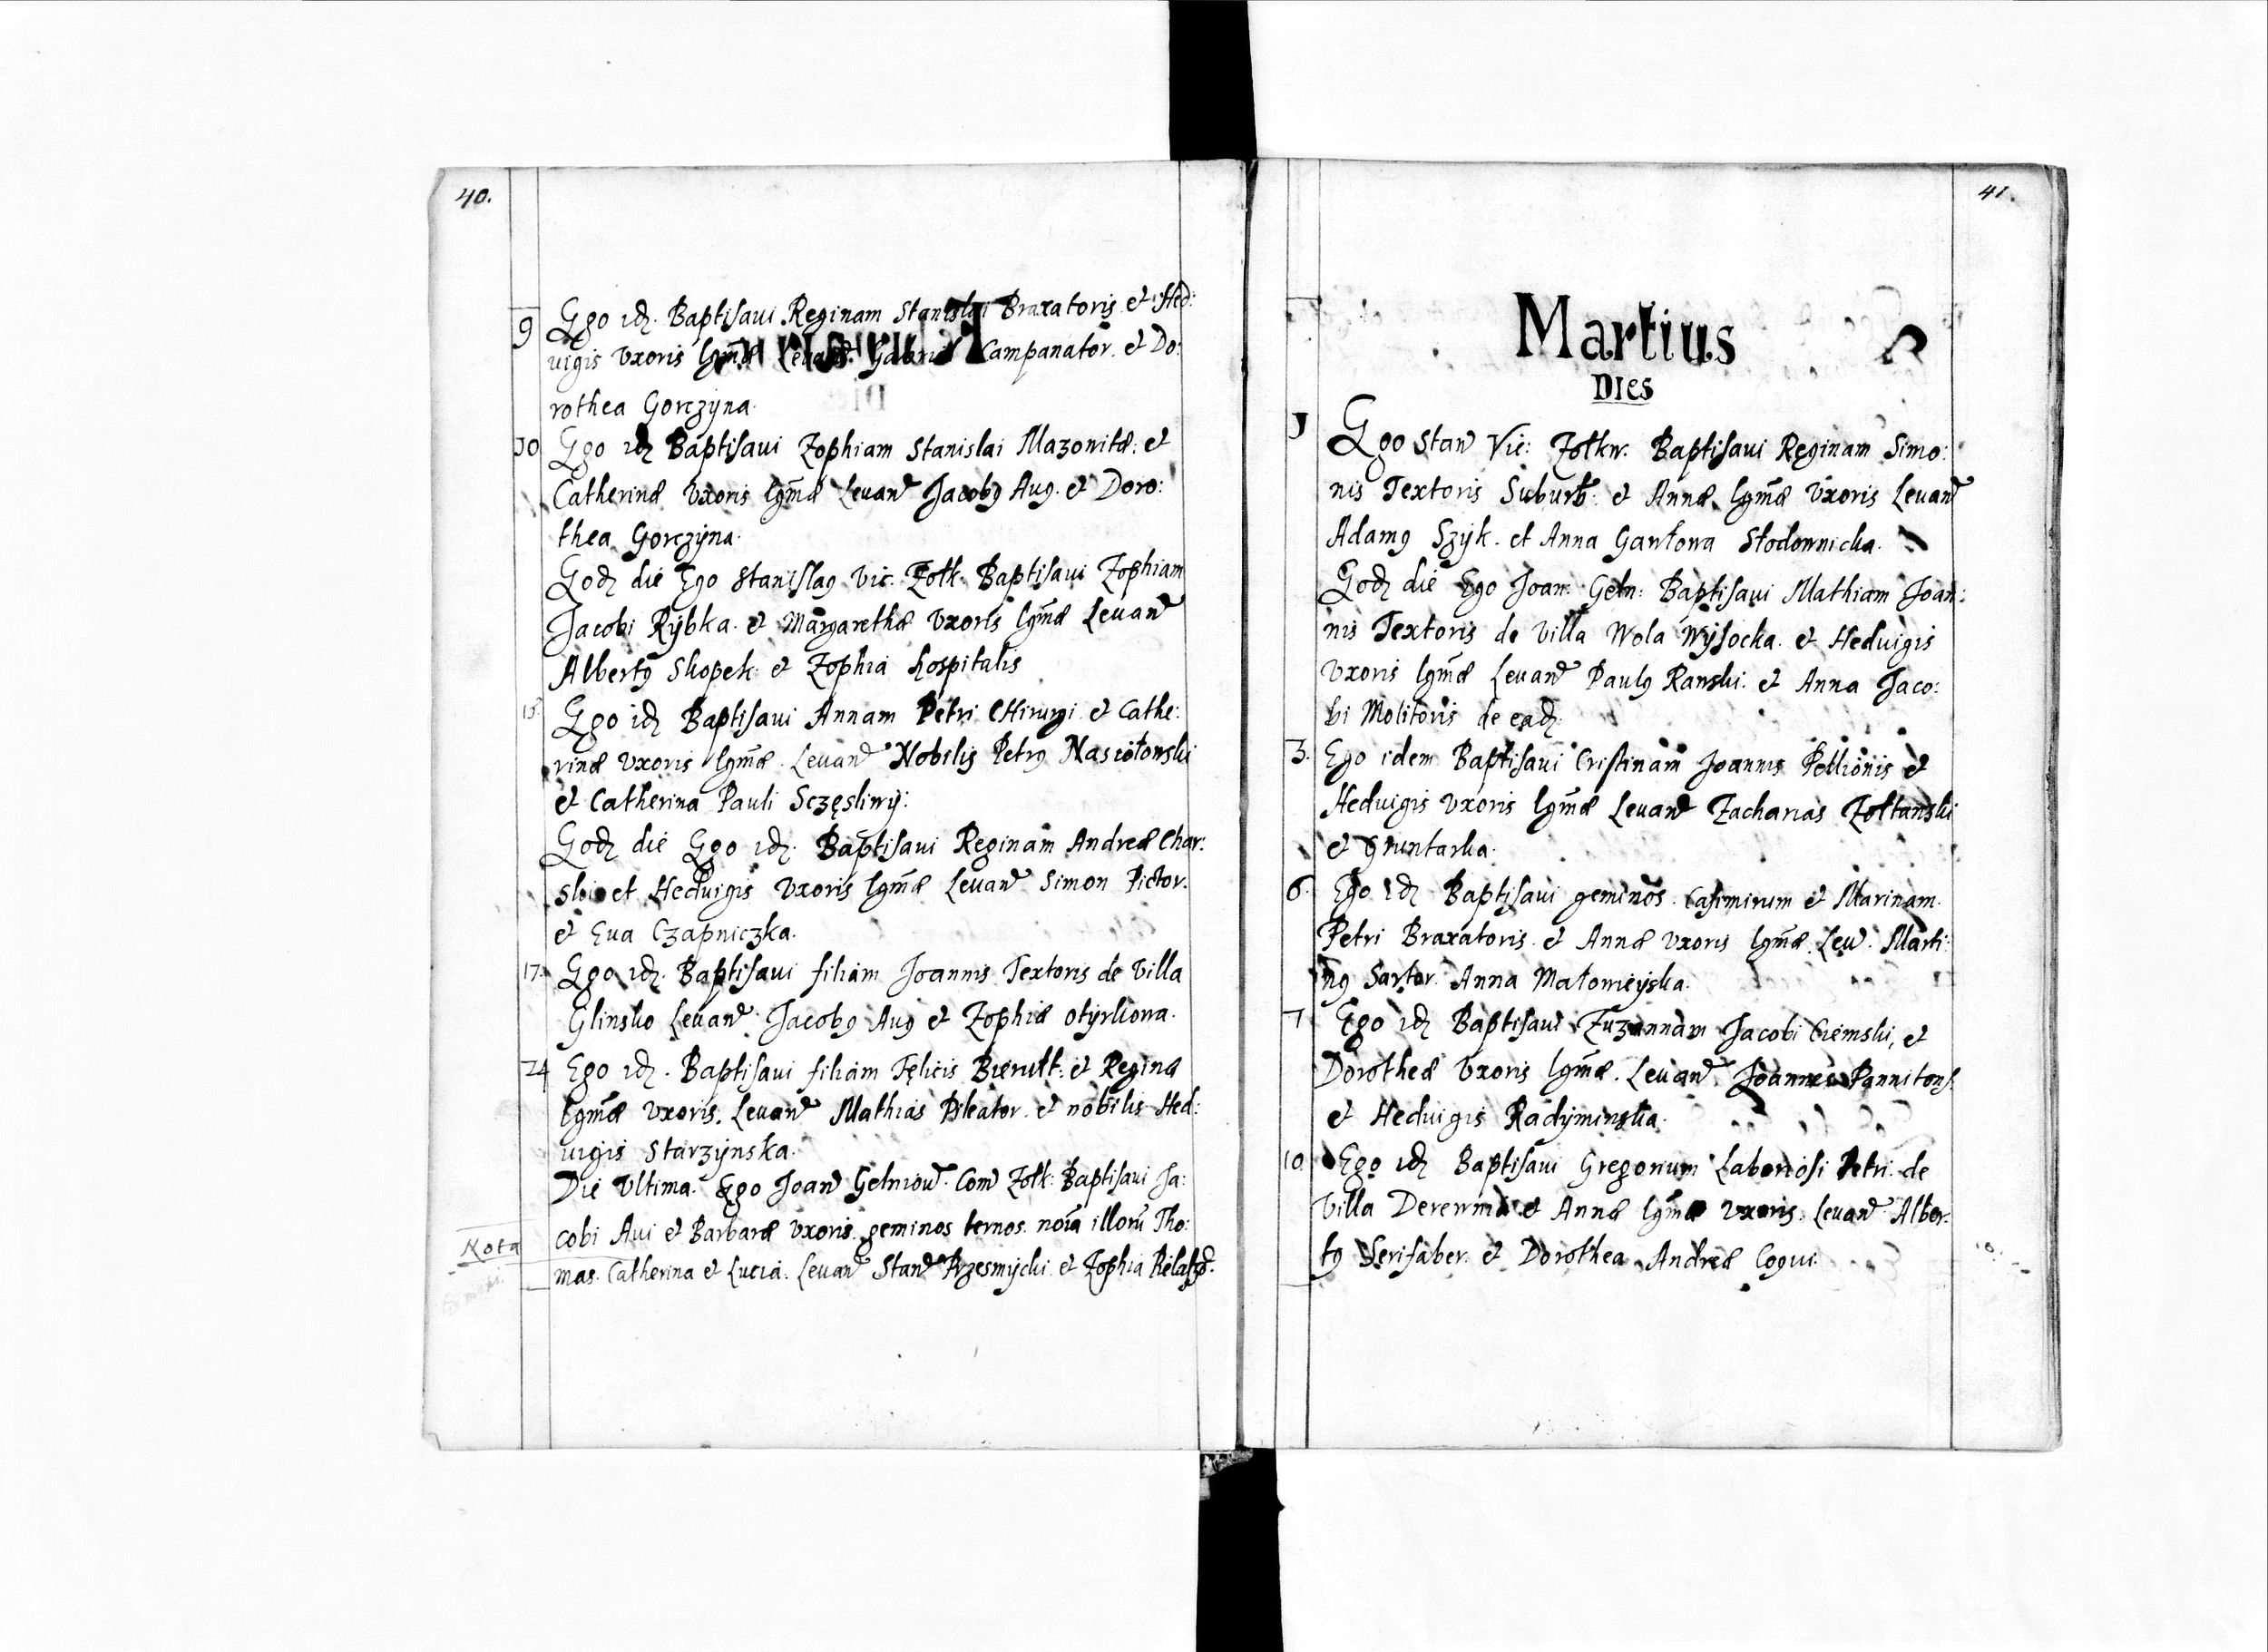 40.
9 Ego idẽ. Baptisaui Reginam Stanislai Braxatoris et Hed:
uigis Vxoris lgmæ Leuand Gabriel Campanator. et Do:
rothea Gorczyna.
10 Ego idẽ Baptisaui Zophiam Stanislai Mazonitæ: et
Catherinæ Vxoris lgmæ Leuand Jacobg Aug. et Doro:
thea Gorczyna.
Eodẽ die Ego Stanislag Vic. Zolk: Baptisaui Zophiam
Jacobi Rybka. et Margarethæ Vxoris lgmæ Leuand
Albertg Skopek. et Zophia hospitalis
15 Ego idẽ Baptisaui Annam Petri Chirurgi et Cathe:
rinæ Vxoris lgmæ. Leuand Nobilis Petrg
et Catherina Pauli Sczęsliwy:
Eodẽ die Ego idẽ. Baptisaui Reginam Andreæ Char:
ski et Hedvigis Vxoris lgmæ Leuand Simon Pictor.
et Eua Czapniczka.
17. Ego idẽ. Baptisaui filiam Joannis Textoris de Villa
Glinsko Leuand Jacobg Aug et Zophia Otyrkowa.
24 Ego idẽ. Baptisaui filiam Felicis et Reginæ
lgmæ Vxoris. Leuand Mathias Pileator. et nobilis Hed:
uigis Starzynska.
Die Vltima. Ego Joand Com Zolk: Baptisaui Ja:
Nota cobi Aui et Barbaræ Vxoris geminos ternos. noĩa illorũ Tho:
mas. Catherina et Lucia. Leuand Stand Przesmycki. et Zophia
41.
Martius
Dies
1 Ego Stand Vic: Zolkw. Baptisaui Reginam Simo:
nis Textoris Suburb: et Annæ lgmæ Vxoris Leuand
Adamg Szyk. et Anna Stodownicka.
Eodẽ die Ego Joan: Geln: Baptisaui Mathiam Joan:
nis Textoris de Villa Wola Wysocka. et Heduigis
Vxoris lgmæ Leuand Paulg Ranski. et Anna Jaco:
bi Molitoris de eadẽ.
3. Ego idem Baptisaui Cristinam Joannis Pellionis et
Heduigis Vxoris lgmæ Leuand Zacharias Zoltanski
et Gruntarka.
6. Ego idẽ Baptisaui geminos. Casimirum et Marinam.
Petri Braxatoris. et Annæ Vxoris lgmæ. Leud. Marti:
ng Sartor. Anna Matowieyska.
7. Ego idẽ Baptisaui Zuzannam Jacobi Ciemski, et
Dorotheæ Vxoris lgmæ. Leuand. Joannes Pannitons.
et Heduigis Radyminska.
10. Ego idẽ Baptisaui Gregorium Laboriosi Petri: de
Villa Derewnia et Annæ lgmæ Vxoris. Leuand Alber:
tg Serifaber. et Dorothea Andreæ Coqui.